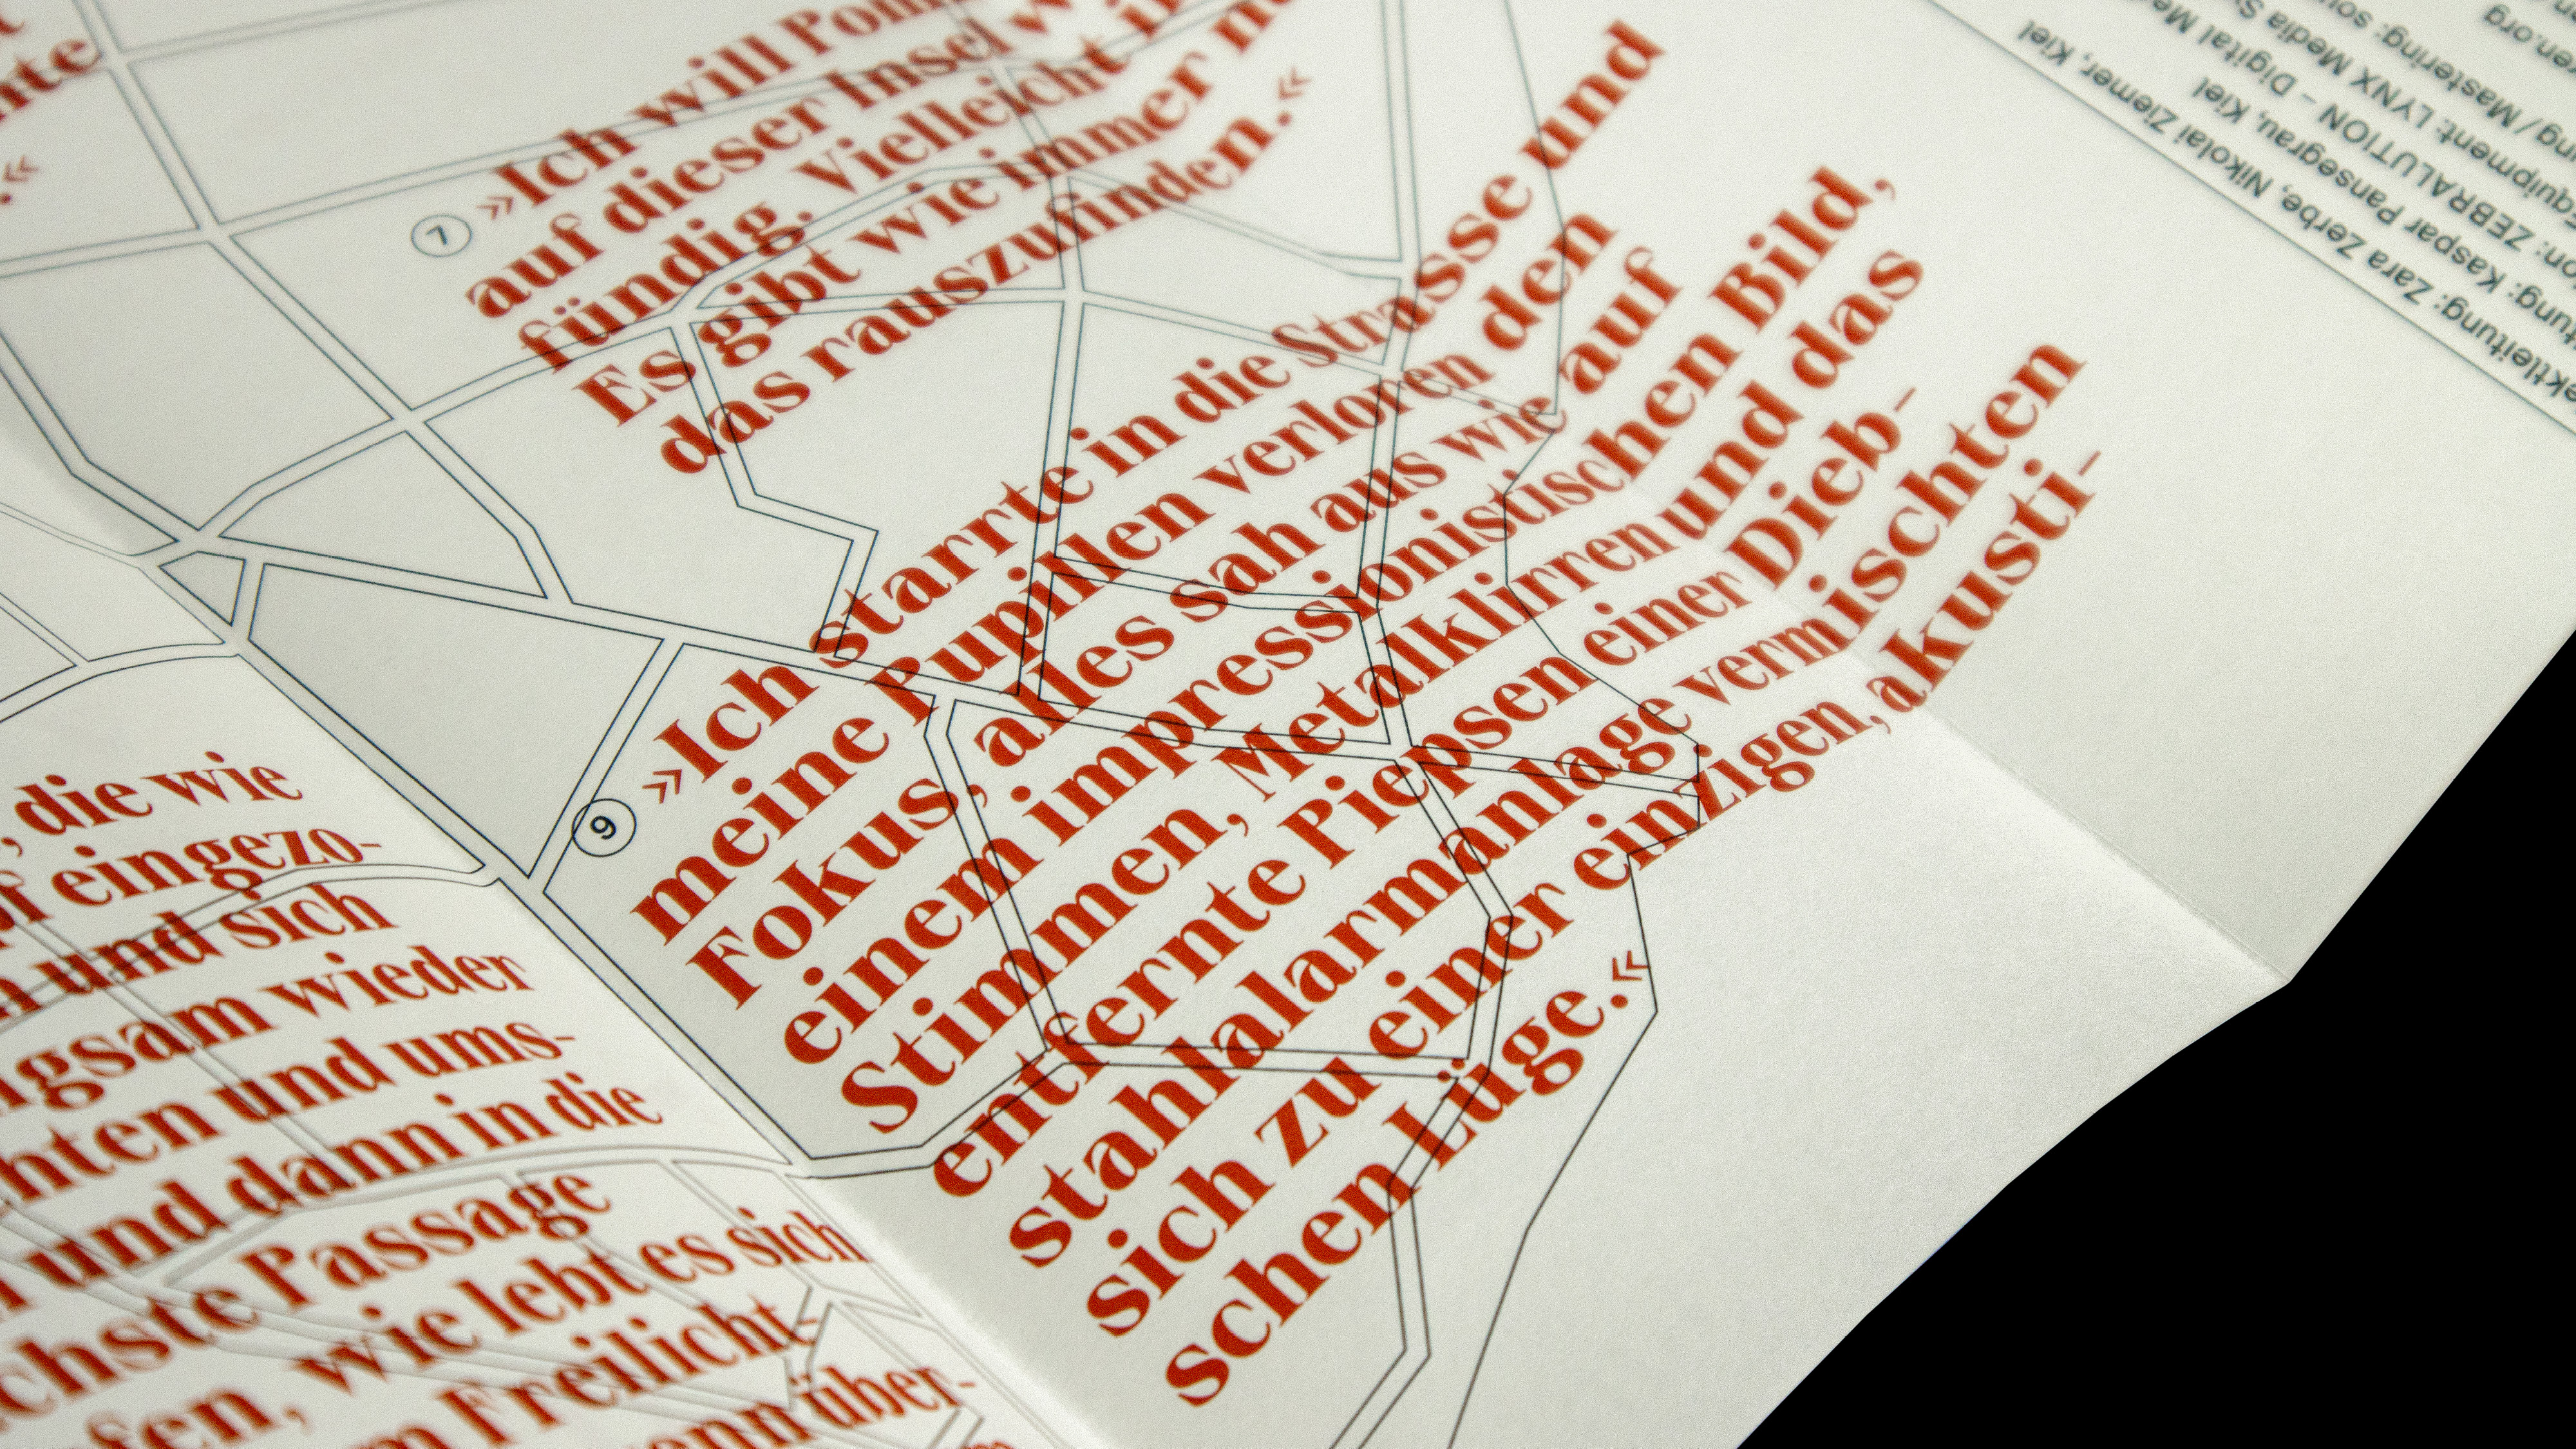 nte
.«
7
»Ich will
auf dieser Insel
fündig. Vielleicht
Es gibt wie immer
das rauszufinden.«
9
»Ich starrte in die Strasse und
meine Pupillen verloren den
Fokus, alles sah aus wie auf
einem impressionistischen Bild,
Stimmen, Metalklirren und das
entfernte Piepsen einer Dieb-
stahlalarmanlage vermischten
sich zu einer einzigen, akusti-
schen Lüge.«
, die wie
f eingezo-
n und sich
ngsam wieder
chten und ums-
und dann in die
chste Passage
fen, wie lebt es sich
m Freilicht-
wenn über-
ektleitung: Zara Zerbe, Nikolai Ziemer, Kiel
tung: Kaspar Pansegrau, Kiel
on: ZEBRALUTION – Digital Me
quipment: LYNX Media S
ng / Mastering: sou
en.org